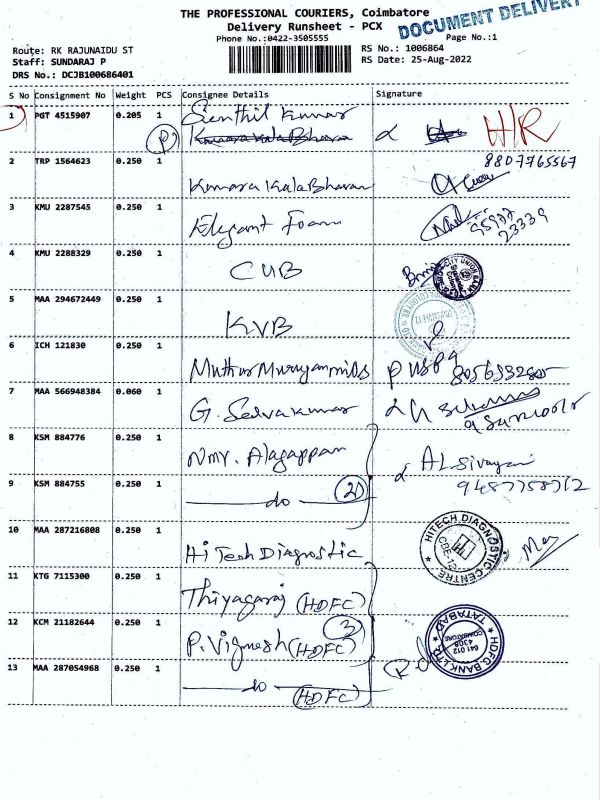 THE PROFESSIONAL COURIERS, Coimbatore
DOCUMENT DELIVERY
Delivery Runsheet - PCX
Phone No.:0422-3505555
Page No.:1
Route: RK RAJUNAIDU ST
RS No.: 1006864
Staff: SUNDARAJ P
RS Date: 25-Aug-2022
DRS No.: DCJB100686401
S No Consignment No Weight PCS Consignee Details Signature
1 PGT 4515907 0.205 1 Senthil Kumar
KumaraKalaBhavan
H/R
2 TRP 1564623 0.250 1 8807765567
Kumara KalaBhavan
3 KMU 2287545 0.250 1 Elegant Foam 95977
23339
4 KMU 2288329 0.250 1 CUB
5 MAA 294672449 0.250 1 KVB
6 ICH 121830 0.250 1
7 MAA 566948384 0.060 1 G. Selvakumar
8 KSM 884776 0.250 1 Nmr. Alagappan
9 KSM 884755 0.250 1 do 2
10 MAA 287216808 0.250 1 Hi Tech Diagnostic
HITECH DIAGNOSTIC CENTRE
11 KTG 7115300 0.250 1 Thiyagaraj (HDFC)
12 KCM 21182644 0.250 1 P. Vignesh (HDFC) 3
HDFC BANK LTD
TATABAD
COIMBATORE
641 012
4308
13 MAA 287054968 0.250 1 do (HDFC)